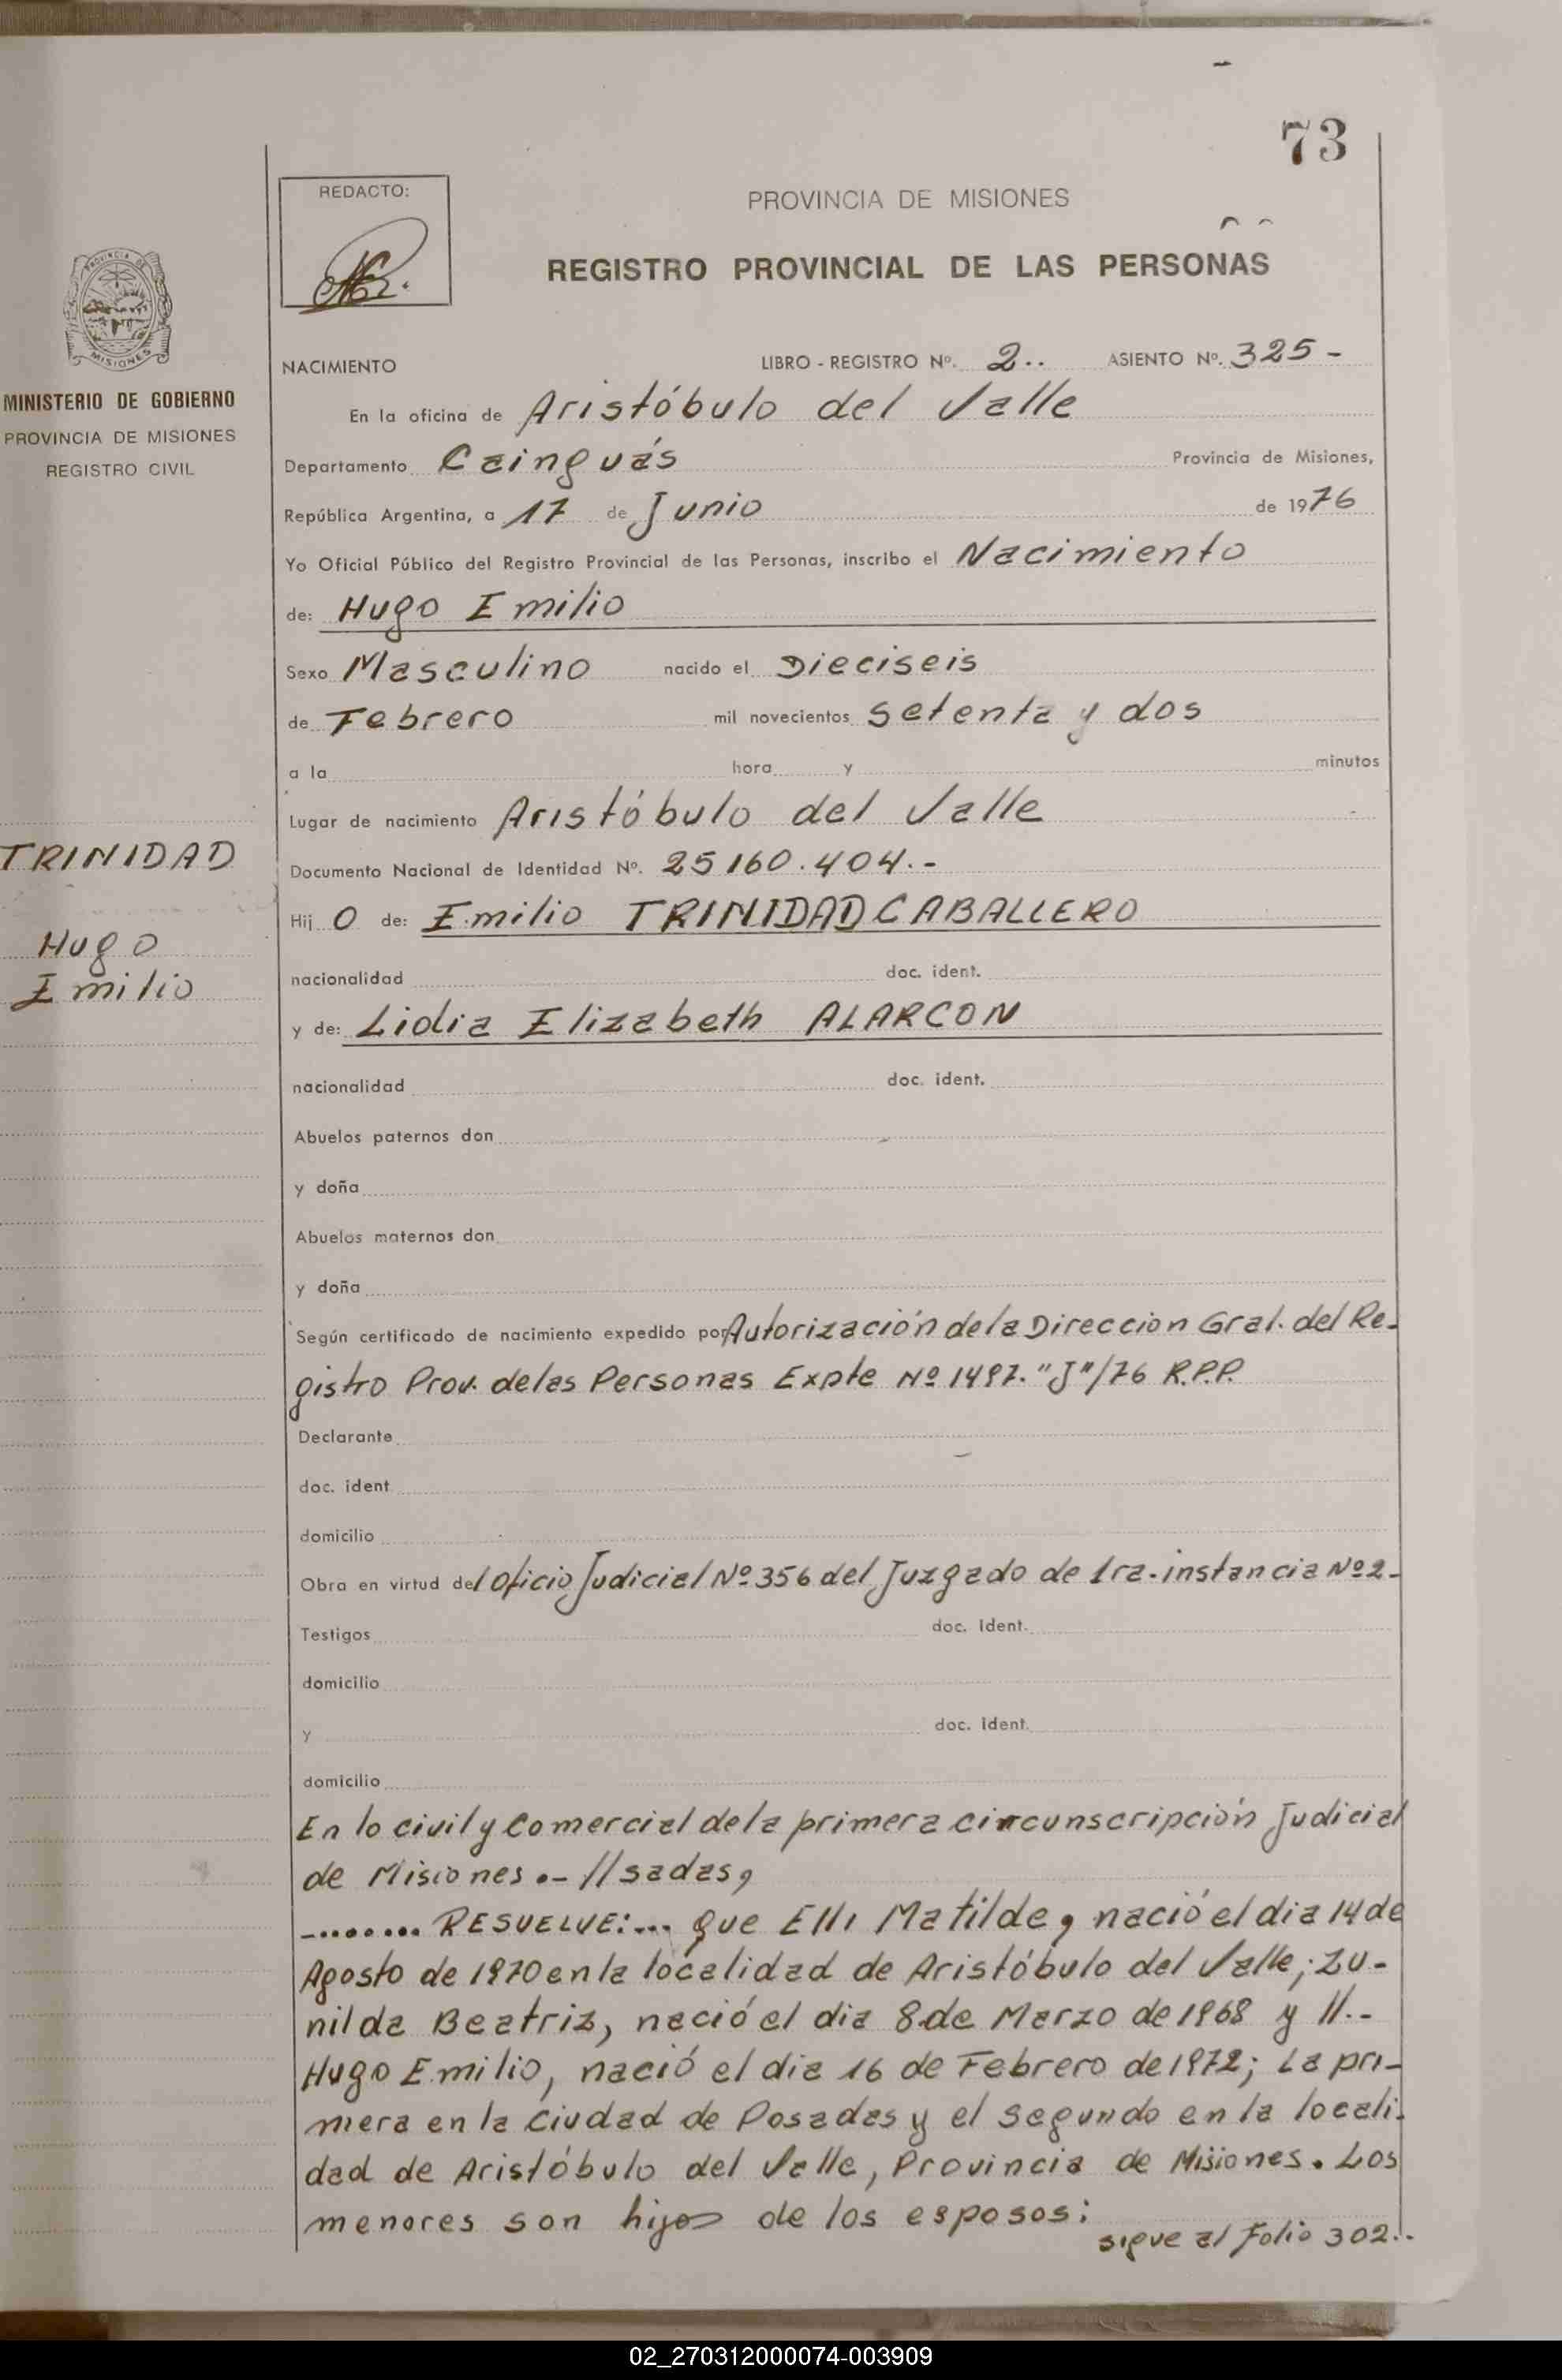 73
REDACTO:
PROVINCIA DE MISIONES
REGISTRO PROVINCIAL DE LAS PERSONAS
PROVINCIA DE
MISIONES
MINISTERIO DE GOBIERNO
PROVINCIA DE MISIONES
REGISTRO CIVIL
NACIMIENTO LIBRO - REGISTRO Nº. 2.. ASIENTO Nº. 325 -
En la oficina de Aristóbulo del Valle
Departamento Cainguás Provincia de Misiones,
República Argentina, a 17 de Junio de 1976
Yo Oficial Público del Registro Provincial de las Personas, inscribo el Nacimiento
de: Hugo Emilio
Sexo Masculino nacido el Dieciseis
de Febrero mil novecientos setenta y dos
a la hora y minutos
Lugar de nacimiento Aristóbulo del Valle
TRINIDAD
Documento Nacional de Identidad Nº. 25160.404.-
Hij o de: Emilio TRINIDAD CABALLERO
Hugo
Emilio
nacionalidad doc. ident.
y de: Lidia Elizabeth ALARCON
nacionalidad doc. ident.
Abuelos paternos don
y doña
Abuelos maternos don
y doña
Según certificado de nacimiento expedido por Autorización de la Direccion Gral. del Re-
gistro Prov. de las Personas Expte Nº 1497. "J"/76 R.P.P.
Declarante
doc. ident
domicilio
Obra en virtud del Oficio Judicial Nº 356 del Juzgado de 1ra. instancia Nº 2-
Testigos doc. Ident.
domicilio
y doc. Ident.
domicilio
En lo civil y Comercial de la primera circunscripción Judicial
de Misiones.- //sadas,
-........ RESUELVE:... que Elli Matilde, nació el dia 14 de
Agosto de 1970 en la localidad de Aristóbulo del Valle; Zu-
nilda Beatriz, nació el dia 8 de Marzo de 1968 y //.-
Hugo Emilio, nació el dia 16 de Febrero de 1972; La pri-
mera en la Ciudad de Posadas y el segundo en la locali-
dad de Aristóbulo del Valle, Provincia de Misiones. Los
menores son hijos de los esposos:
sigue al Folio 302..
02_270312000074-003909